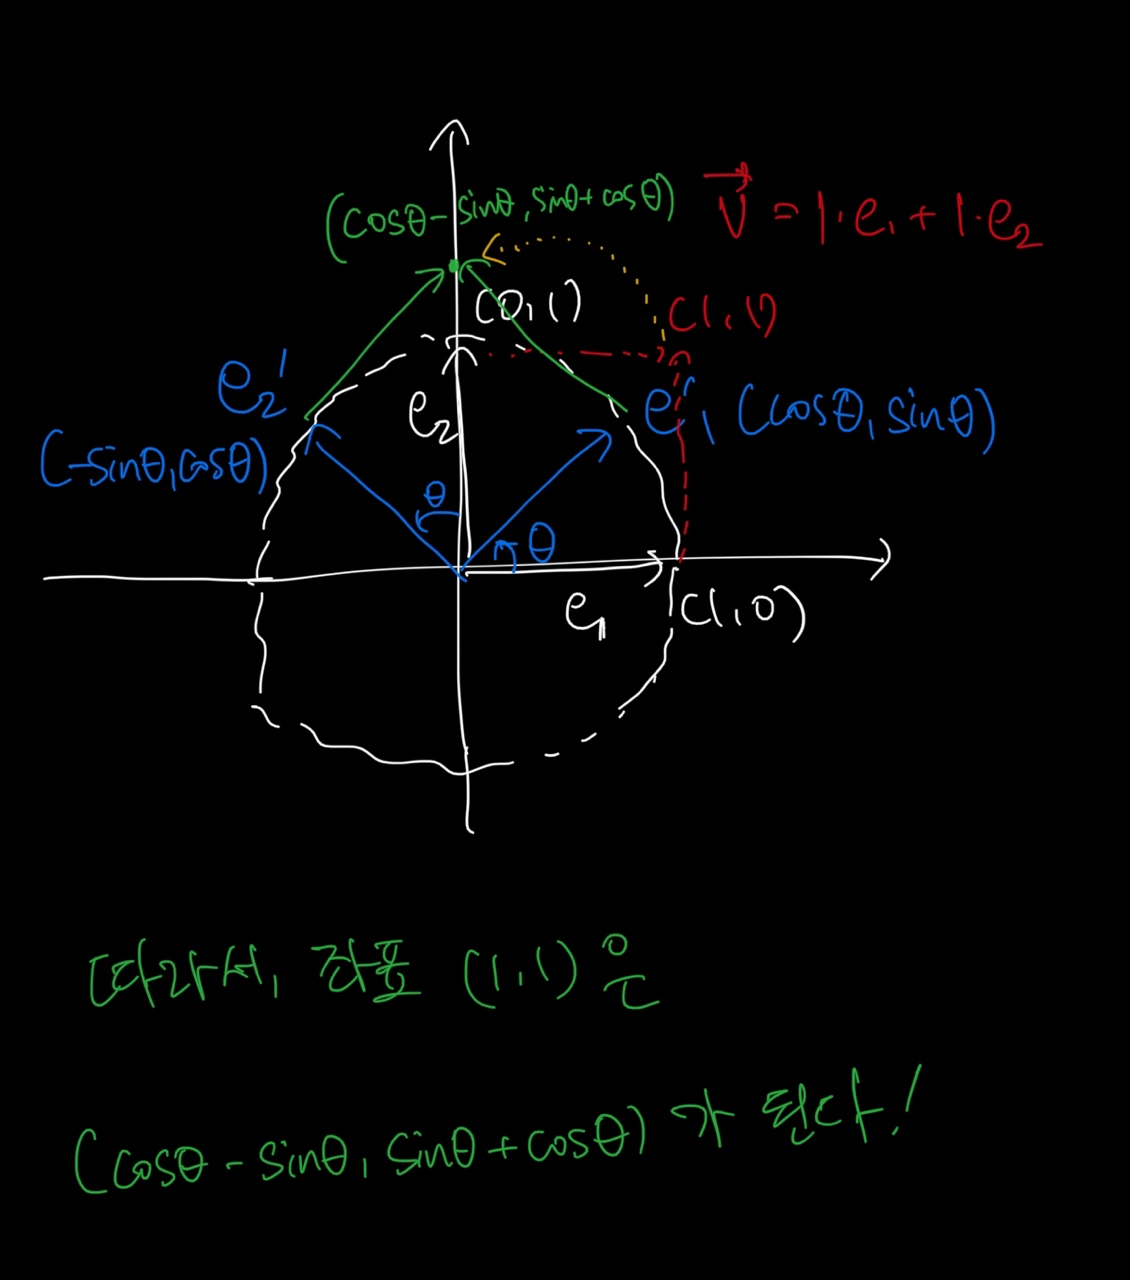 (cosθ-sinθ, sinθ+cosθ)
V = 1·e₁ + 1·e₂
(0,1)
(1,1)
e₂'
e₂
e₁' (cosθ, sinθ)
(-sinθ, cosθ)
θ
θ
e₁
(1,0)
따라서, 좌표 (1,1)은
(cosθ-sinθ, sinθ+cosθ)가 된다!